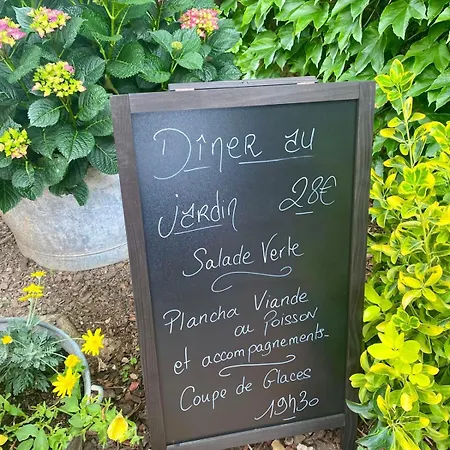 Dîner au
jardin 28€
Salade Verte
Plancha Viande
au Poisson
et accompagnements
Coupe de Glaces
19h30